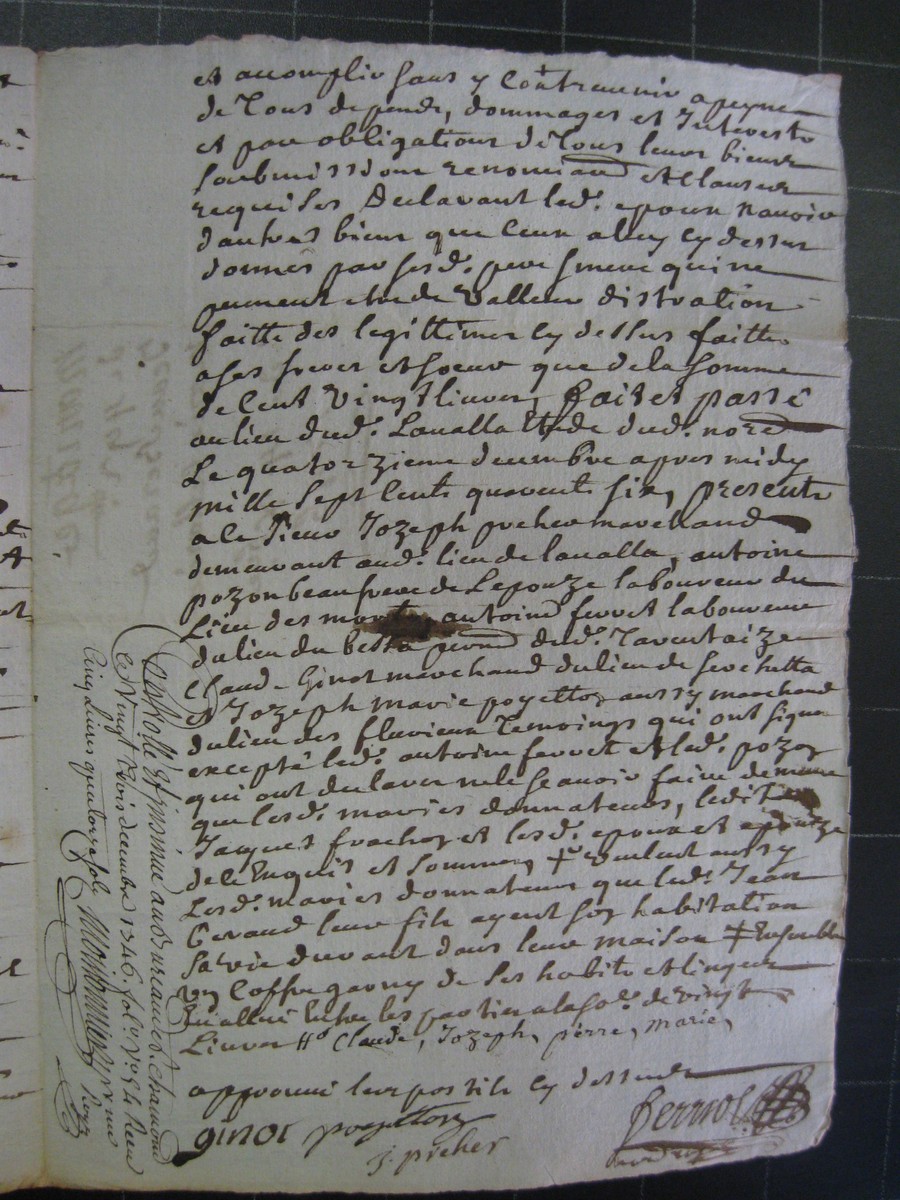 et accomplir sans y contrevenir a peyne
de tous depends, dommages et Interests
et par obligations de tous leurs biens
soubmissions renonciaons et clauses
requises Declarant led. epoux n'avoir
d'autres biens que ceux a luy cy dessus
donnés par sesd. pere & mere qui ne
peuvent etre de valleur distration
faitte des legittimes cy dessus faittes
a ses freres et soeurs que de la somme
de cent vingt livres, fait et passé
au lieu dud. Lavalla etude dud. nore
Le quatorzieme decembre apres midy
mille sept cents quarente six, presents
a ce sieur Jozeph precher marchand
demeurant aud. lieu de lavalla, antoine
pozon beaufrere de l'epouze laboureur du
Lieu des antoine ferrot laboureur
du lieu du bessa dud. Tarentaize
Claude Ginot marchand du lieu de
et Jozeph marie poyetton aussy marchand
du lieu des flavieux temoings qui ont signé
excepté led. antoine ferrot et led. pozon
qui ont declarer ne le scavoir faire de meme
que lesd. mariés donnateurs, ledit
Jacques frachon et lesd. epoux et epouze
de ce Enquis et sommés, + veulent aussy
Lesd. mariés donnateurs que led. Jean
leur fils ayent son habitation
sa vie durant dans leur maison + Ensemble
un coffre garny de ses habits et linges
Evalué Entre les parties a la so.e de vingt
Livres Claude, Jozeph, pierre, marie,
approuvé les postile cy dessus
ginot poyetton
J. precher
Controllé & Insinué au bureau de st chaumond
le vingt trois decembre 1746. fol. Receu
cinq livres quatorze sols